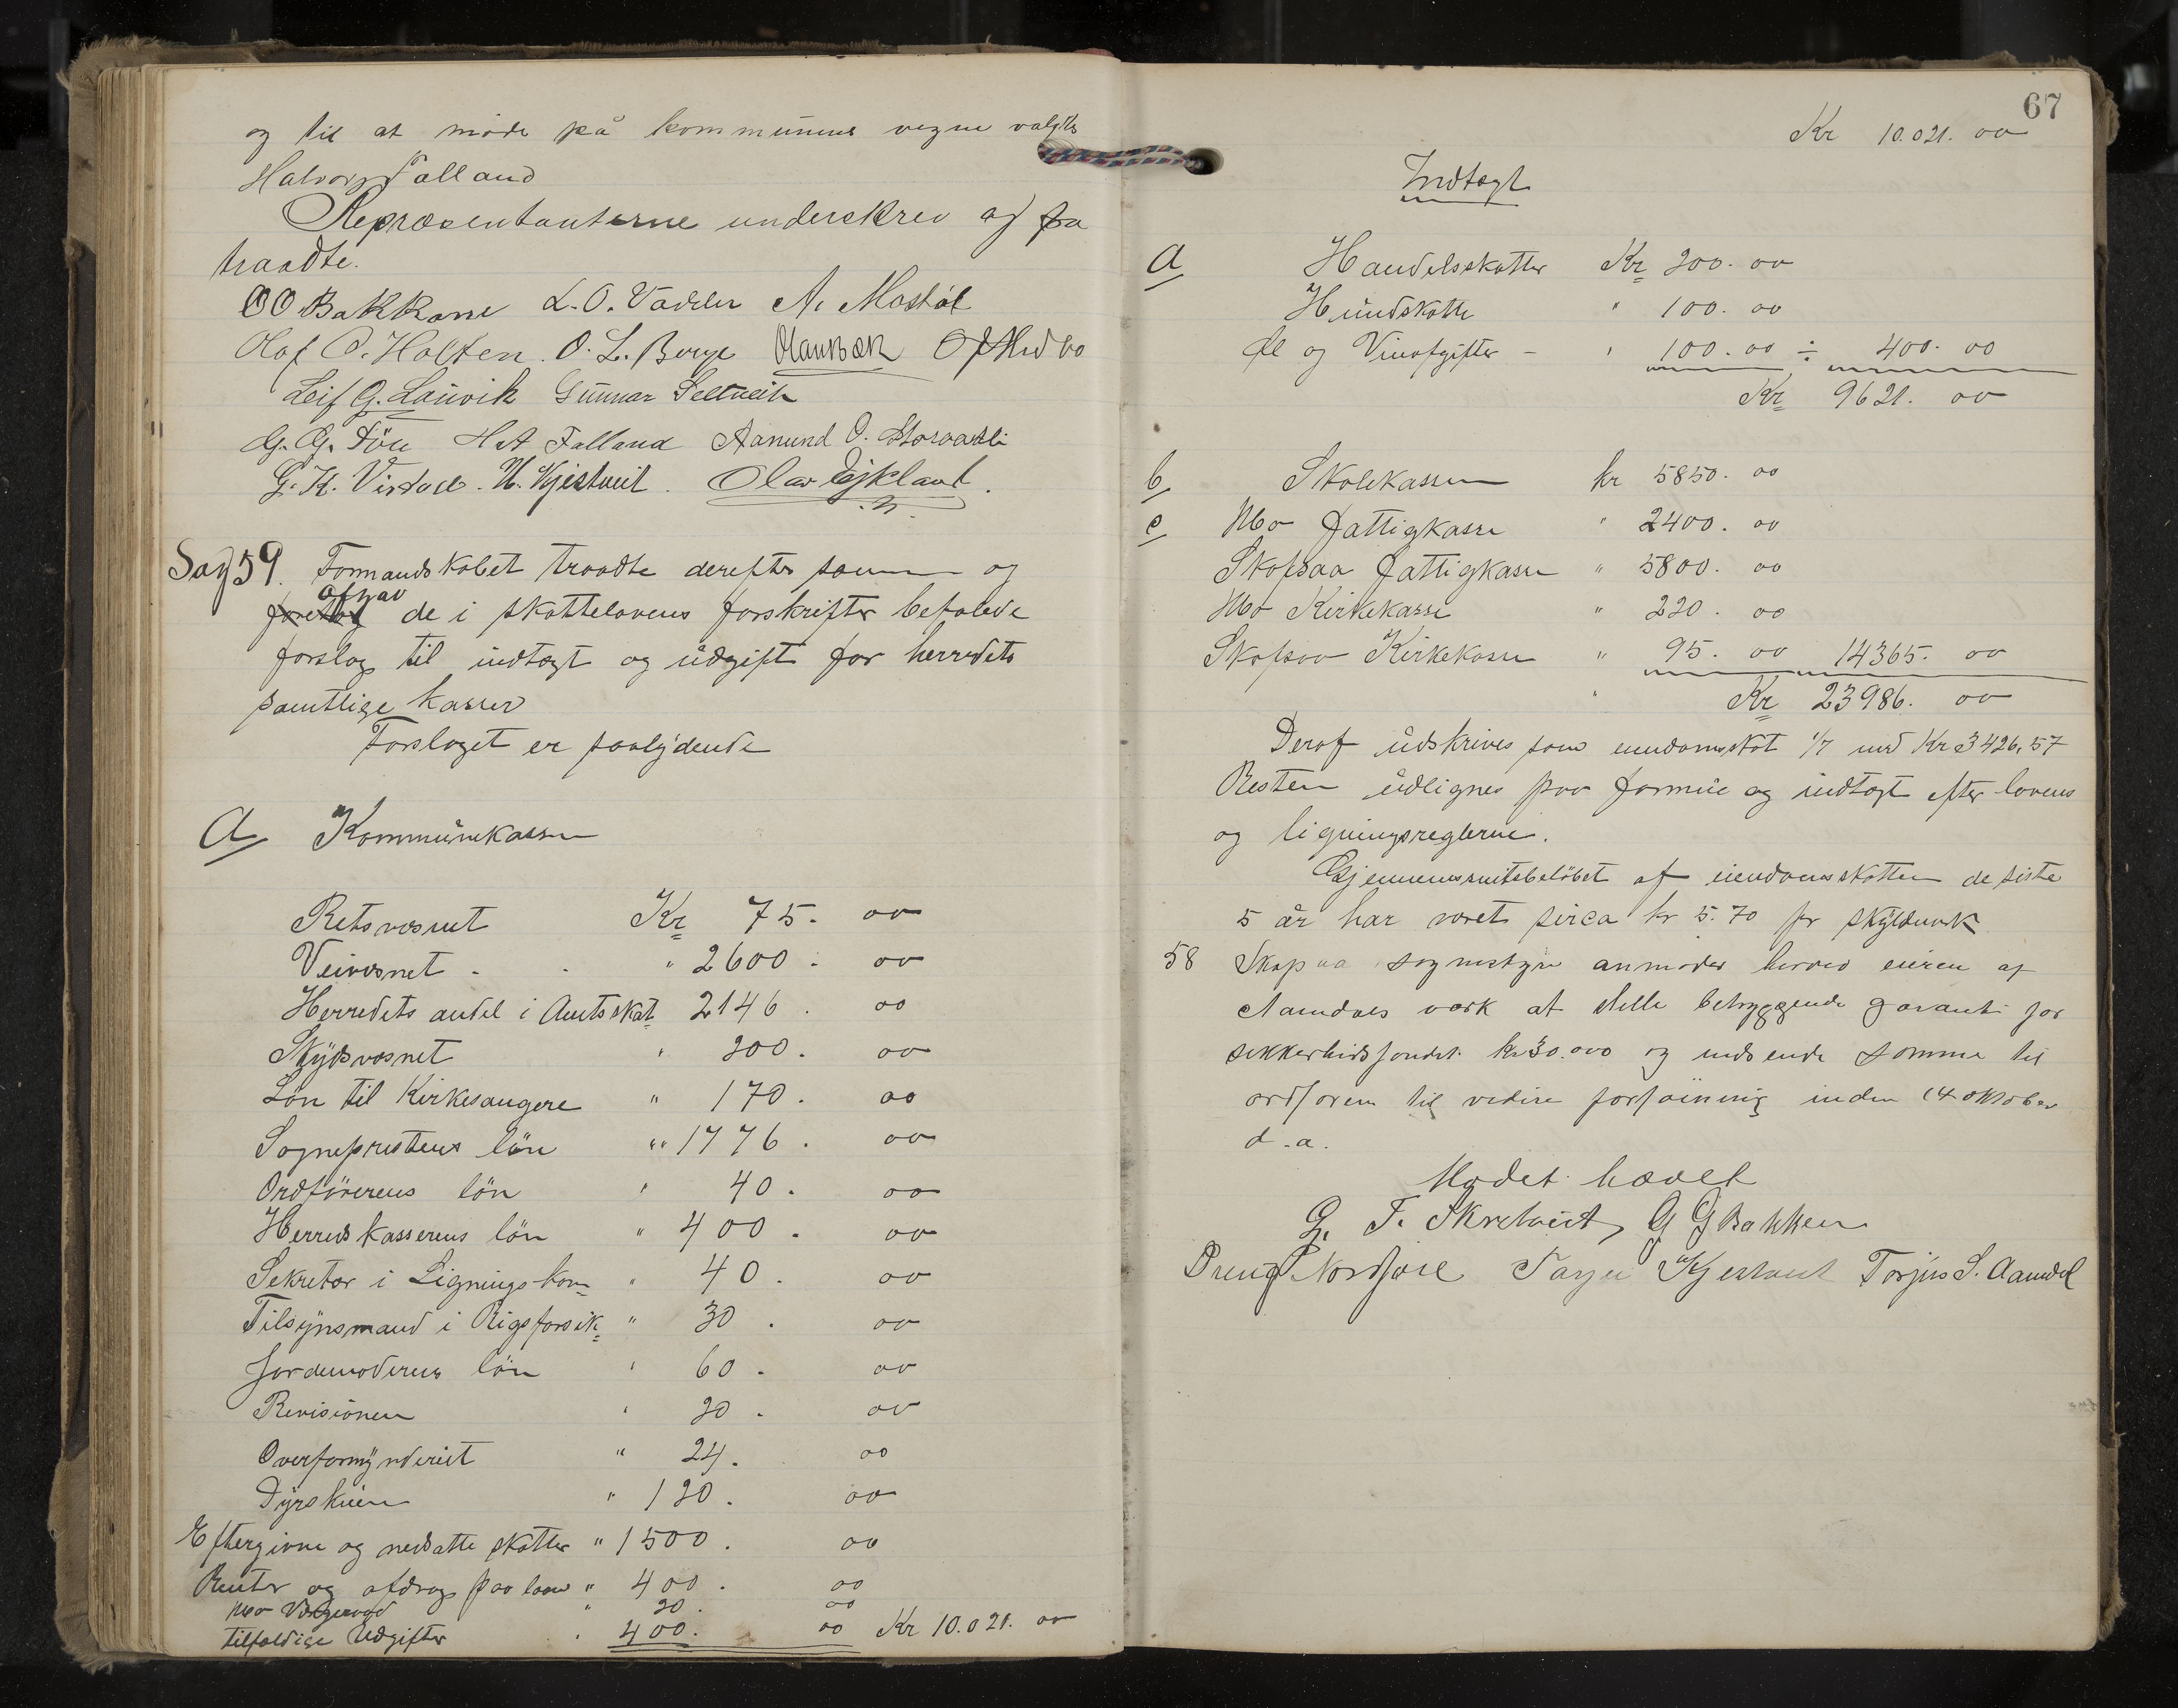 og til at møde på kommunens vegne valgtes
Halvor Falland
Repræsentanterne underskrev og fra
traadte.
OO Bakkane L. O. Vadder A. Mostøl
Olaf O. Holten. O. L. Berge O. Hedbo
Leif G. Lauvik Gunnar Seltveit
G. G. Töu H A Falland Aanund O. Storaasli
G. K. Virdod. N. Kjistveit. Olav Ejkland.
Sag 59. Formandskabet traadte derefter sammen og
foretog afgav de i skattelovens forskrifter befalede
forslag til indtægt og udgift for herredets
samtlige kasser
Forslaget er saalydende
A Kommunekassen
Retsvæsnet Kr 75. 00
Veivæsnet " 2600. 00
Herredets andel i Amtsskat 2146. 00
Skydsvæsnet " 200. 00
Løn til Kirkesangere " 170. 00
Sogneprestens løn " 1776. 00
Ordförerens løn " 40. 00
Herredskasserens løn " 400. 00
Sekretær i Ligningskom " 40. 00
Tilsynsmand i Rigsforsik. " 30. 00
Jordemoderens løn " 60. 00
Revisionen " 20. 00
Overformynderiet " 24. 00
Dyrskuen " 120. 00
Eftergivne og nedsatte skatter " 1500. 00
Renter og afdrag paa laan " 400. 00
Mo Vergeraad " 20. 00
tilfældige Udgifter " 400. 00 Kr 10.021. 00
67
Kr 10.021. 00
Indtægt
A Handelsskatter Kr 200. 00
Hundskatte " 100. 00
Øl og Vinafgifter - " 100. 00 ÷ 400. 00
Kr 9621. 00
b Skolekassen kr 5850. 00
c Mo Fattigkasse " 2400. 00
Skafsaa Fattigkasse " 5800. 00
Mo Kirkekasse " 220. 00
Skafsaa Kirkekasse " 95. 00 14365. 00
Kr 23986. 00
Deraf udskrives som eiendomsskat 1/7 med Kr 3426,57
Resten udlignes paa formue og indtægt efter lovens
og ligningsreglerne.
Gjennemsnitsbeløbet af eiendomsskatten de siste
5 år har været sirca kr 5.70 pr skyldmark
58 Skafsaa sognestyre anmoder herved eieren af
Aamdals værk at stille betryggende garanti for
sikkerhedsfondet kr 30.000 og indsende samme til
ordføren til videre forføining inden 14 oktober
d. a.
Mødet hævet
G. T. Skretveit, G G Bakken
Dreng Nordjore Tarjei Kjestveit Torjus S. Aamdal